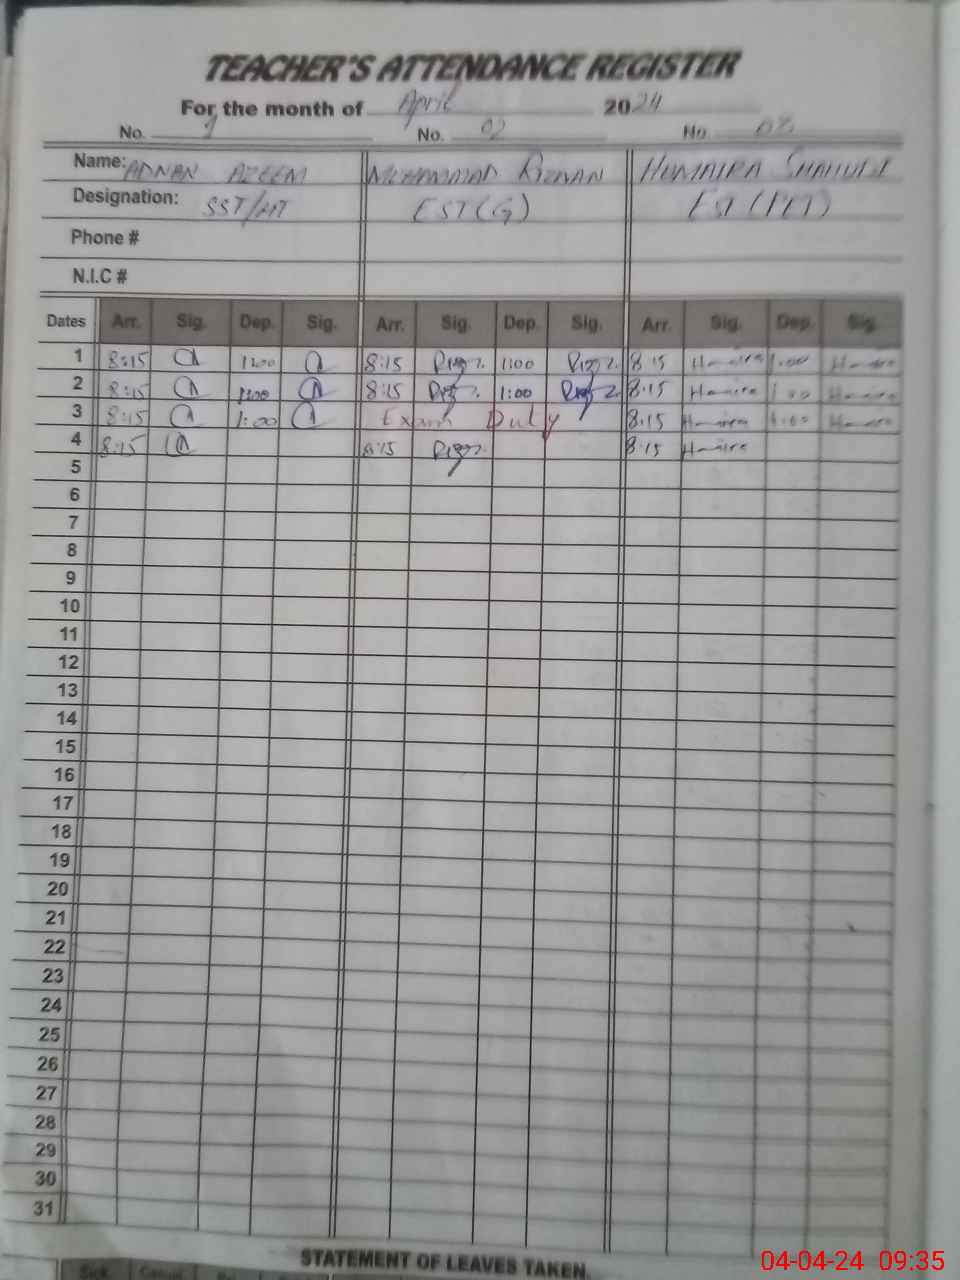 TEACHER'S ATTENDANCE REGISTER
For the month of April 2024
No. 1 No. 02 No. 03
Name: ADNAN AZEEM MUHAMMAD RIZWAN HUMAIRA
Designation: SST/HT EST(G)
Phone #
N.I.C #
Dates Arr. Sig. Dep. Sig. Arr. Sig. Dep. Sig. Arr. Sig. Dep. Sig.
1 8:15 1:00 8:15 1:00 8:15 Humaira 1:00 Humaira
2 8:15 1:00 8:15 1:00 8:15 Humaira 1:00 Humaira
3 8:15 1:00 Exam Duty 8:15 Humaira 1:00 Humaira
4 8:15 8:15 8:15 Humaira
5
6
7
8
9
10
11
12
13
14
15
16
17
18
19
20
21
22
23
24
25
26
27
28
29
30
31
STATEMENT OF LEAVES TAKEN.
04-04-24 09:35